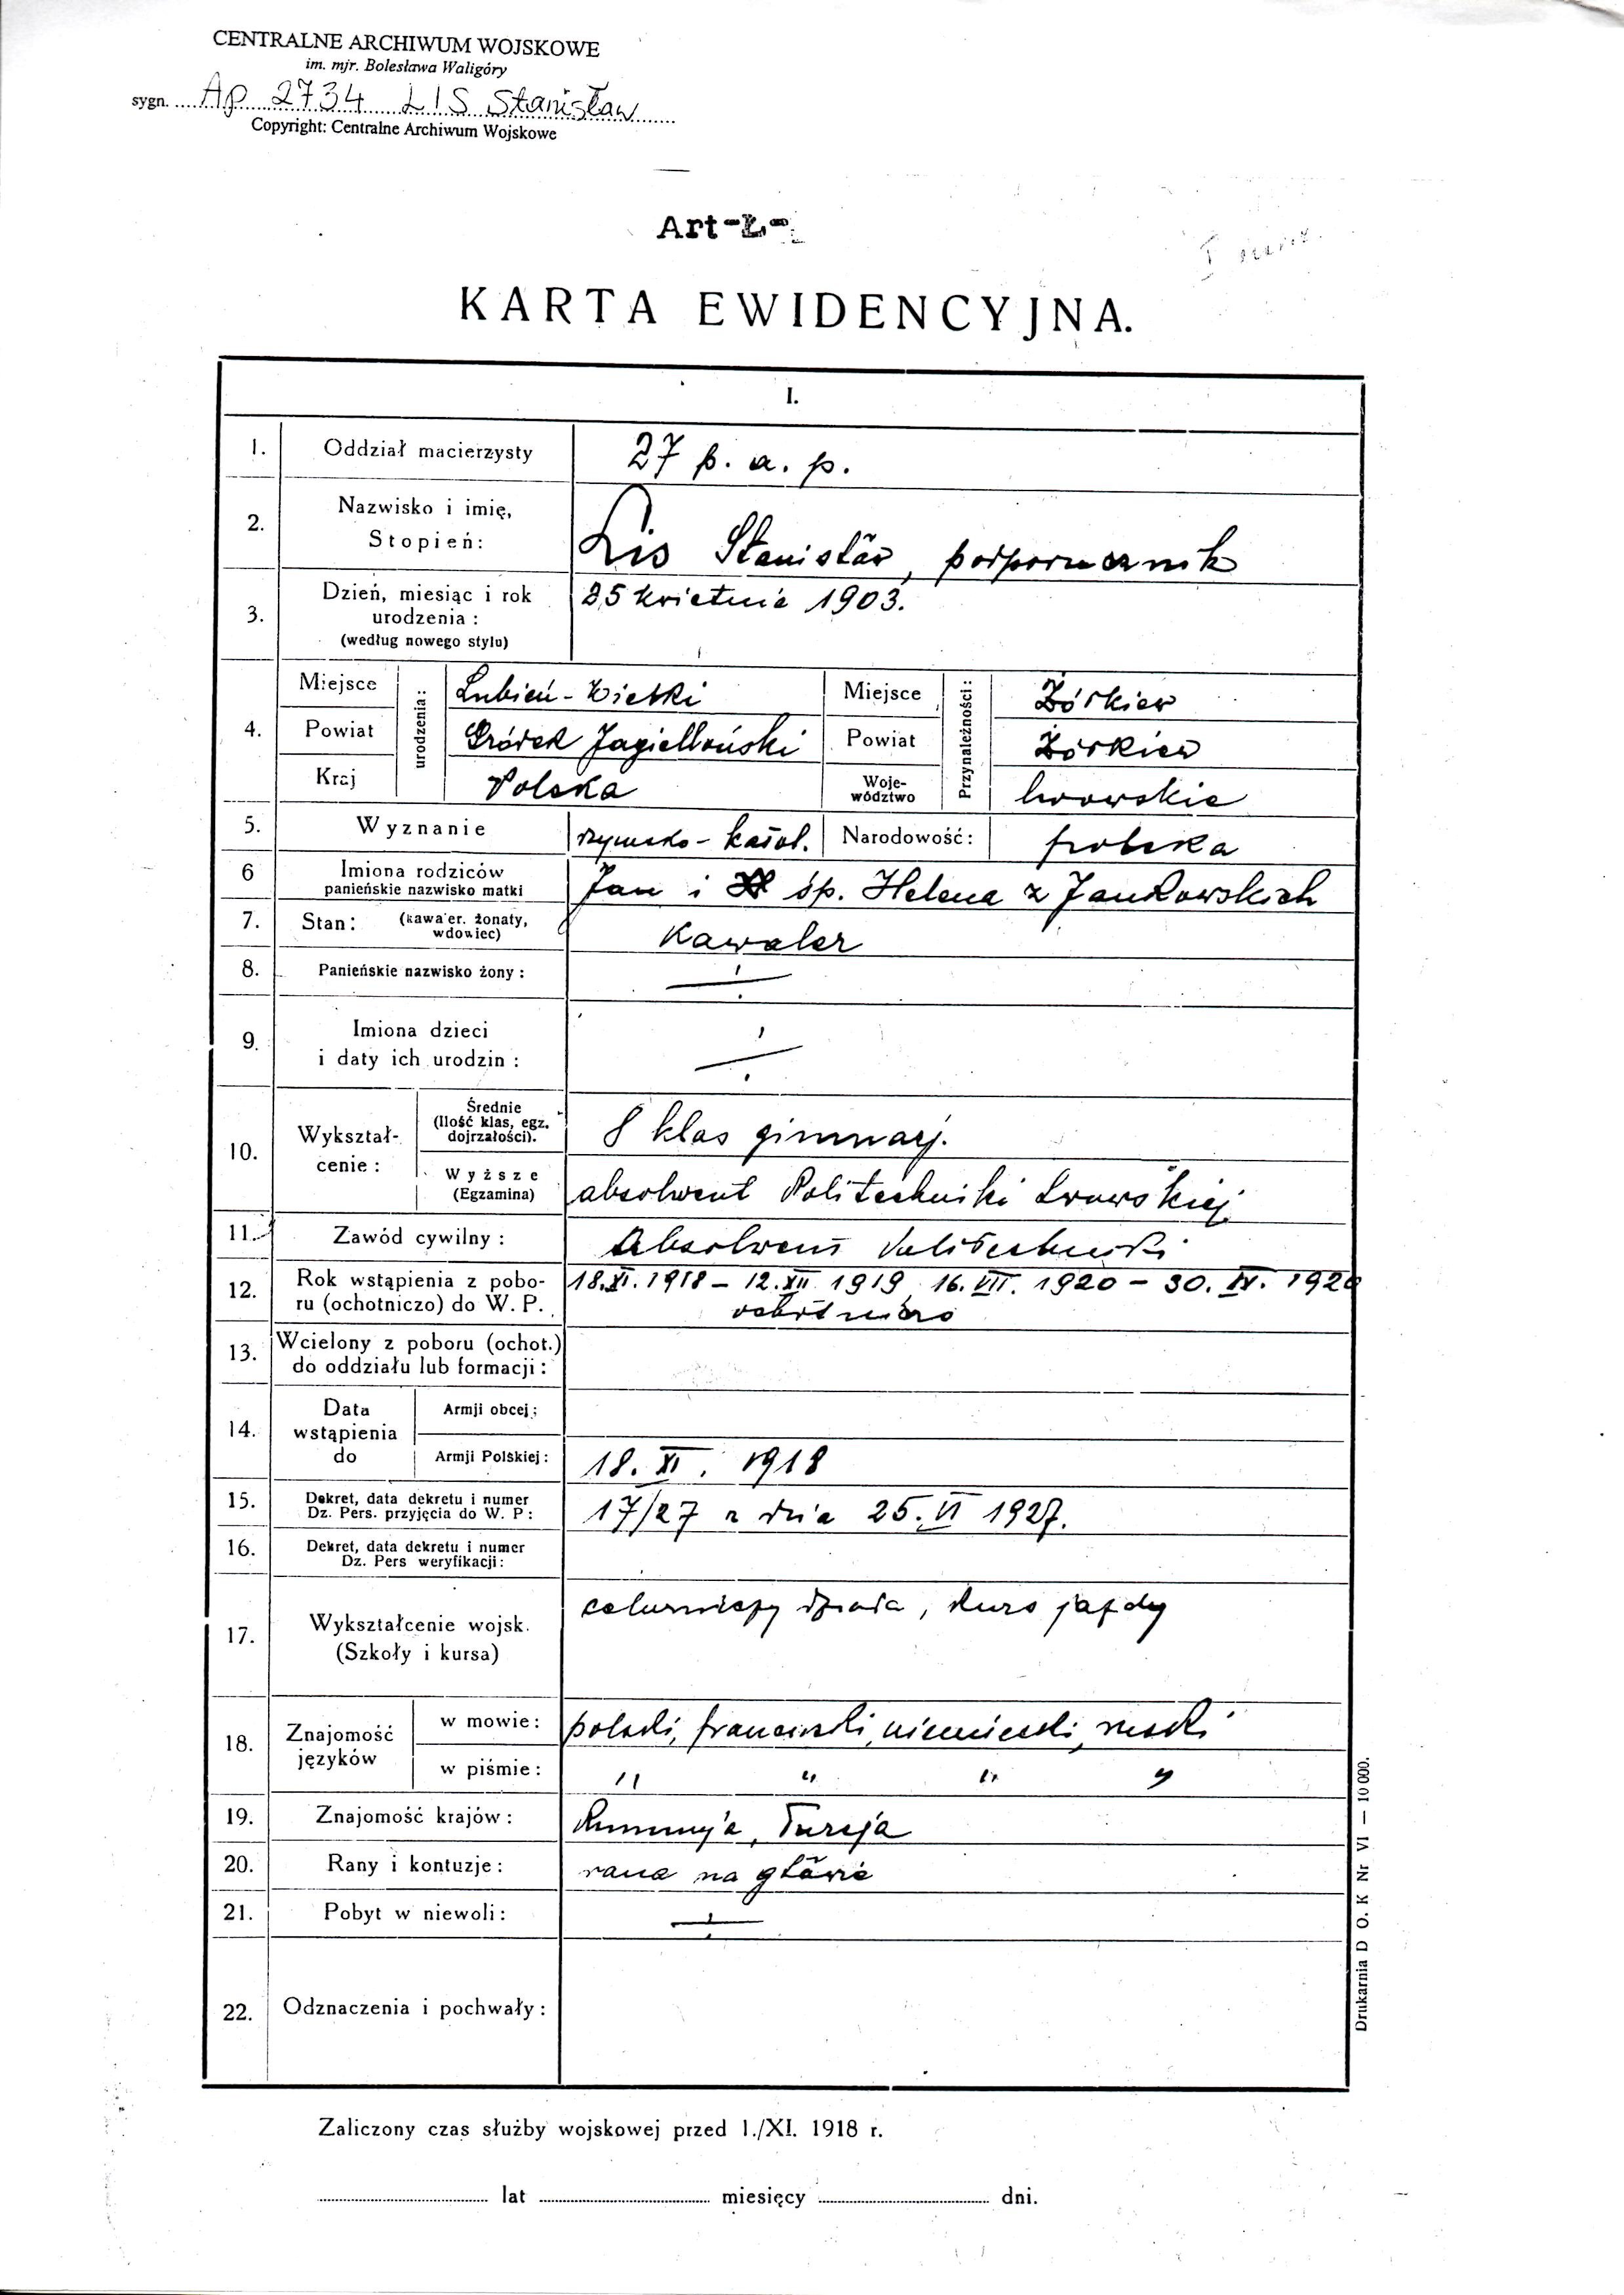 CENTRALNE ARCHIWUM WOJSKOWE
im. mjr. Bolesława Waligóry
sygn. Ap 2734 LIS Stanisław
Copyright: Centralne Archiwum Wojskowe
Art-Ł-
KARTA EWIDENCYJNA.
I.
1. Oddział macierzysty 27 p. a. p.
2. Nazwisko i imię,
Stopień: Lis Stanisław, podporucznik
3. Dzień, miesiąc i rok
urodzenia : 25 kwietnia 1903.
(według nowego stylu)
4. urodzenia: Przynależności:
Miejsce Lubień-Wielki Miejsce Żółkiew
Powiat Gródek Jagielloński Powiat Żółkiew
Kraj Polska Woje-
wództwo lwowskie
5. Wyznanie rzymsko-katol. Narodowość: polska
6 Imiona rodziców
panieńskie nazwisko matki Jan i śp. Helena z Jankowskich
7. Stan: (kawaler. żonaty,
wdowiec) Kawaler
8. Panieńskie nazwisko żony :
9. Imiona dzieci
i daty ich urodzin :
10. Wykształ-
cenie :
Średnie
(Ilość klas, egz.
dojrzałości). 8 klas gimnazj.
Wyższe
(Egzamina) absolwent Politechniki Lwowskiej
11. Zawód cywilny : Absolwent Politechniki
12. Rok wstąpienia z pobo-
ru (ochotniczo) do W. P. 18.XI.1918 – 12.XII 1919 16.VII. 1920 – 30. IX. 1920
ochotniczo
13. Wcielony z poboru (ochot.)
do oddziału lub formacji :
14. Data
wstąpienia
do
Armji obcej :
Armji Polskiej : 18. XI. 1918
15. Dekret, data dekretu i numer
Dz. Pers. przyjęcia do W. P : 17/27 z dnia 25. VI 1927.
16. Dekret, data dekretu i numer
Dz. Pers weryfikacji :
17. Wykształcenie wojsk.
(Szkoły i kursa) celowniczy działa, kurs jazdy
18. Znajomość
języków
w mowie : polski, francuski, niemiecki, ruski
w piśmie : " " " "
19. Znajomość krajów : Rumunja, Turcja
20. Rany i kontuzje : rana na głowie
21. Pobyt w niewoli :
22. Odznaczenia i pochwały :
Drukarnia D O. K Nr VI — 10 000.
Zaliczony czas służby wojskowej przed 1./XI. 1918 r.
lat miesięcy dni.